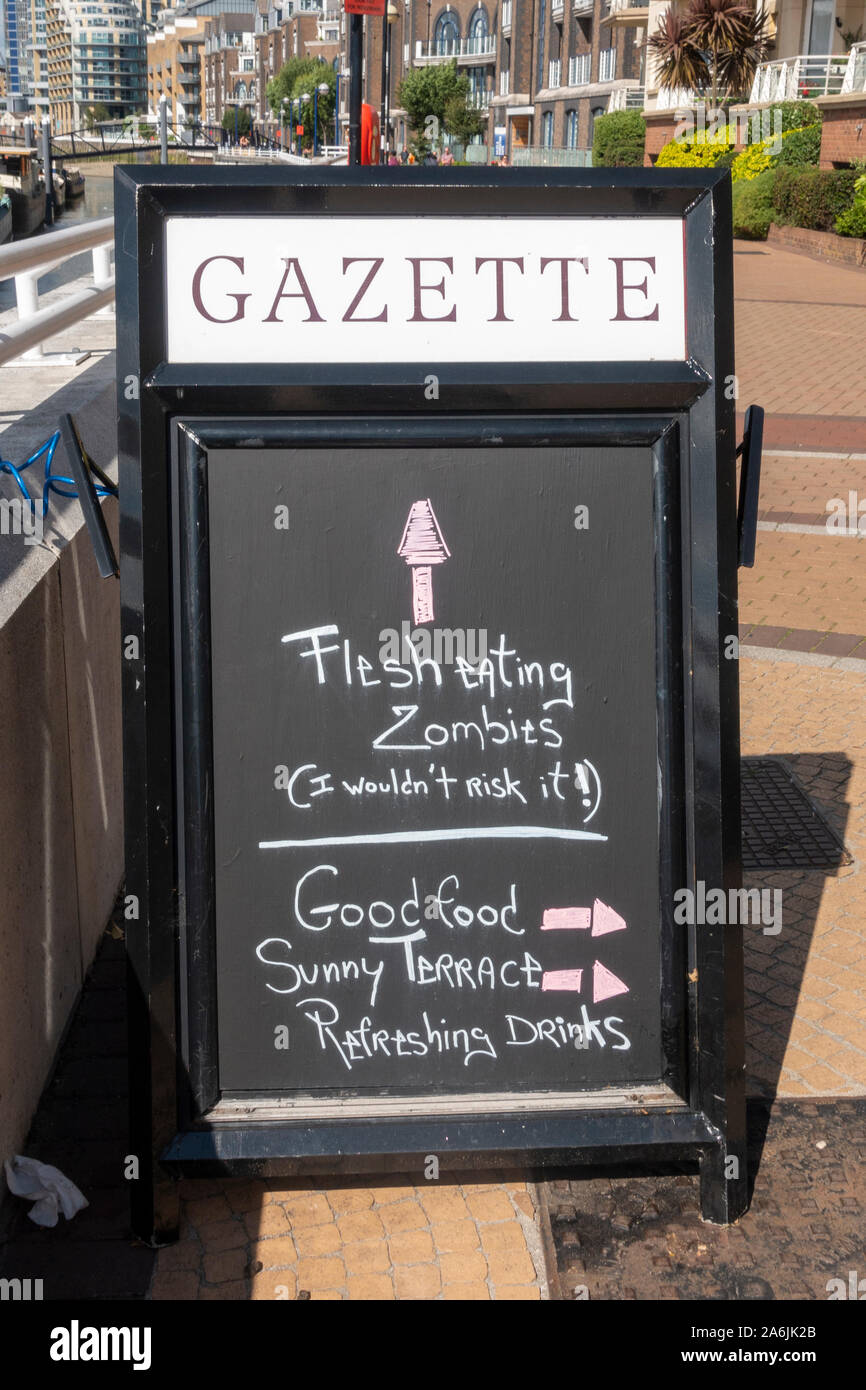 GAZETTE
Flesh eating
Zombies
(I wouldn't risk it!)
Good food
Sunny TERRACE
Refreshing Drinks
alamy
Image ID: 2A6JK2B
www.alamy.com